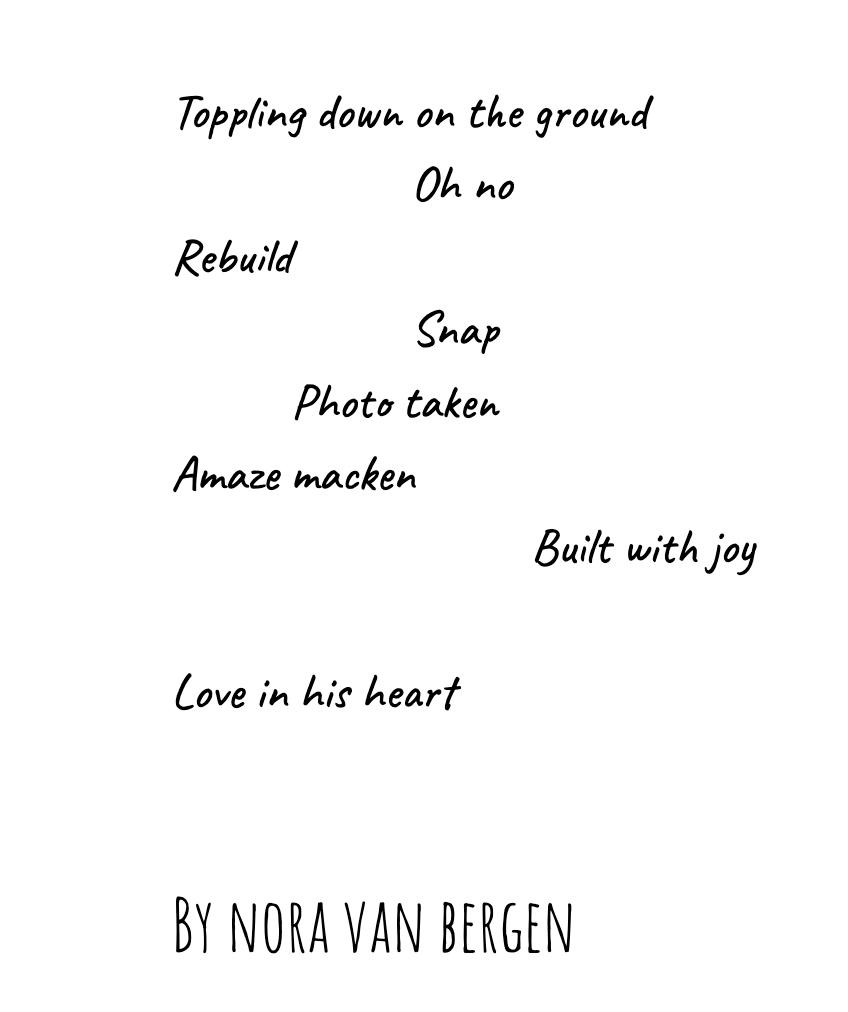 Toppling down on the ground
Oh no
Rebuild
Snap
Photo taken
Amaze macken
Built with joy
Love in his heart
By nora van bergen